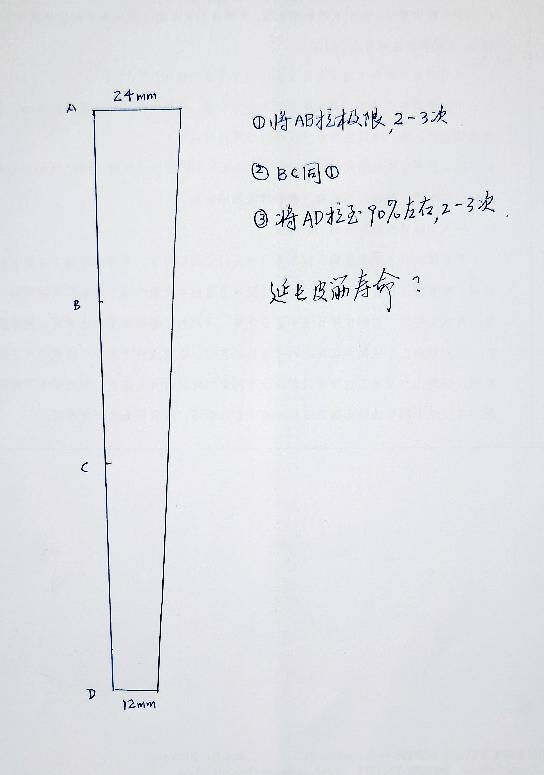 A
24mm
①将AB拉极限,2-3次
②BC同①
③将AD拉至90%左右,2-3次.
B
延长皮筋寿命?
C
D
12mm